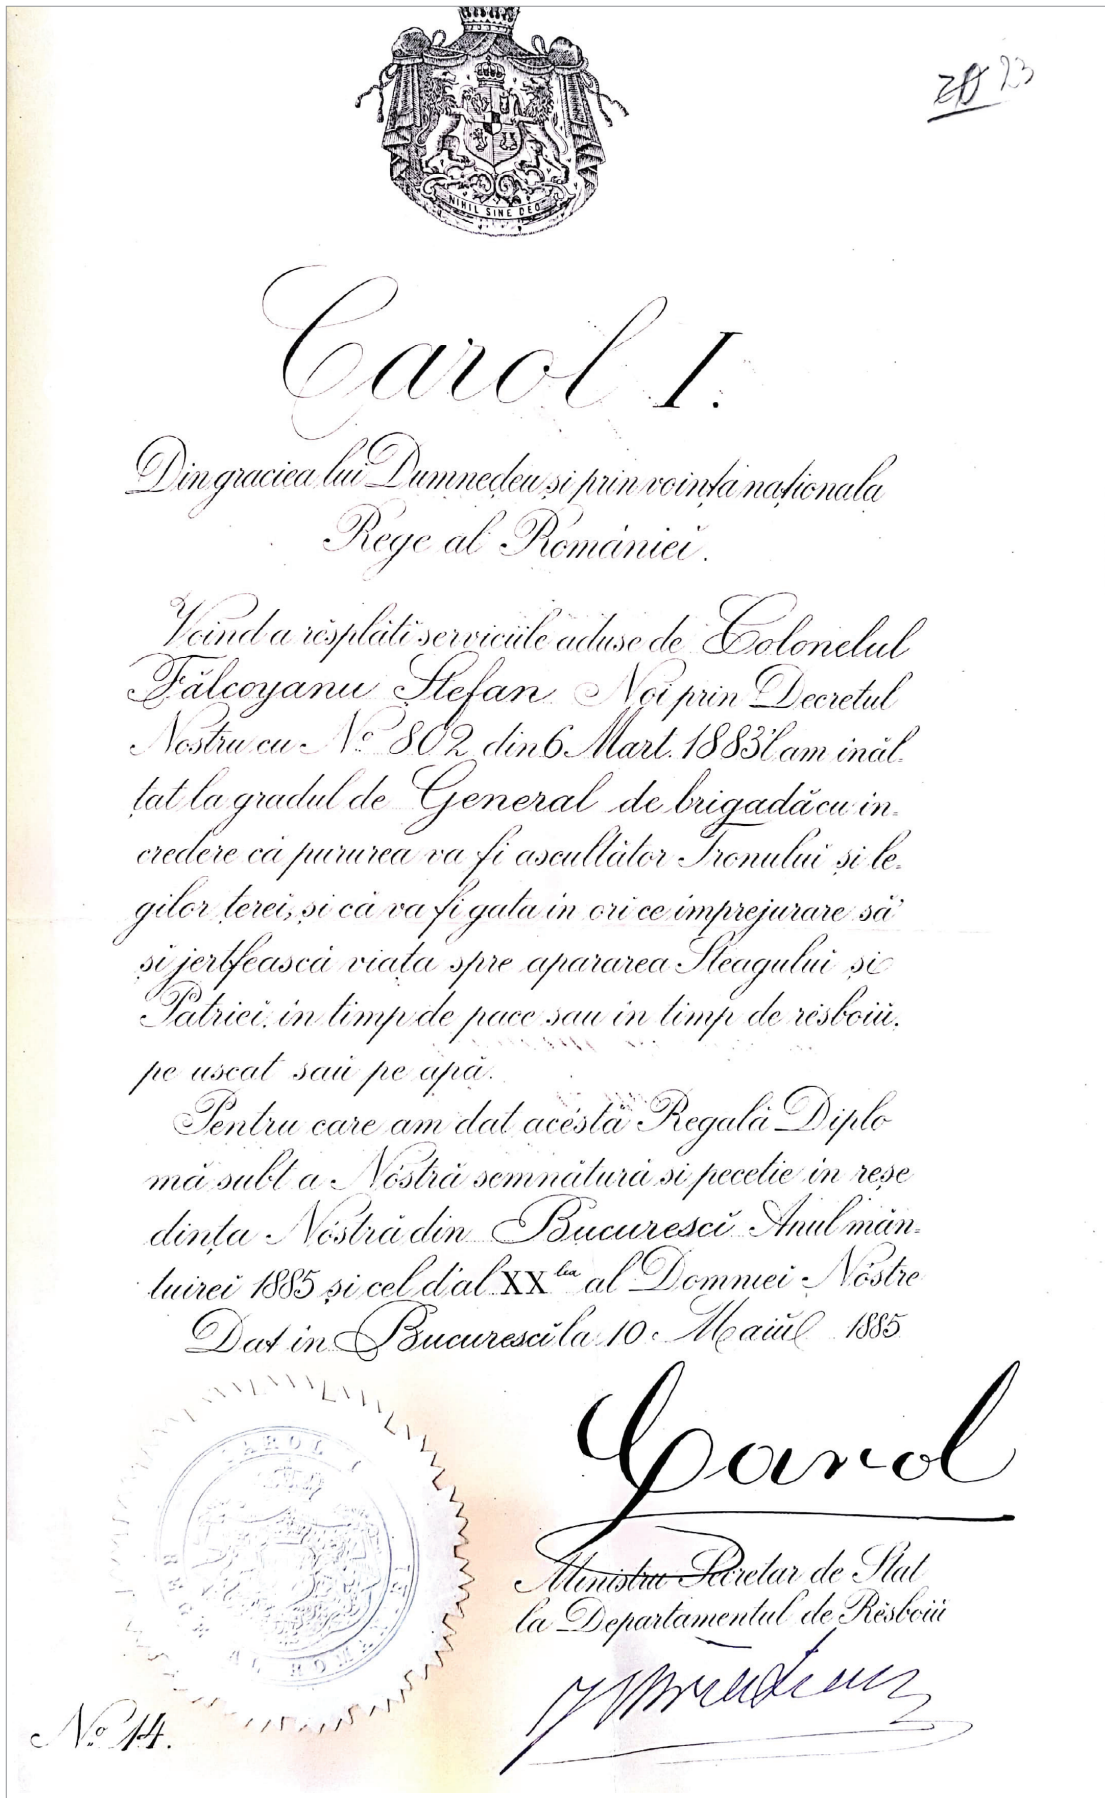 23
NIHIL SINE DEO
Carol I.
Din graciea lui Dumnedeu și prin voința naționala
Rege al Românieĭ.
Voind a rĕsplăti serviciile aduse de Colonelul
Fălcoyanu Ștefan Noi prin Decretul
Nostru cu No 802 din 6 Mart. 1883 'l am inăl-
țat la gradul de General de brigadă cu in-
credere că pururea va fi ascultător Tronuluĭ și le-
gilor țerei, și că va fi gata in ori ce imprejurare să
și jertfească viața spre apararea Steaguluĭ și
Patrieĭ. in timp de pace sau in timp de rĕsboiŭ.
pe uscat saŭ pe apă.
Pentru care am dat acéstă Regală Diplo
mă subt a Nóstră semnătură si pecetie in reșe
dința Nóstră din Bucurescĭ Anul măn-
tuirei 1885 și cel d'al XX lea al Domniei Nóstre
Dat in Bucurescĭ la 10 Maiŭ 1885
Carol
Ministru Secretar de Stat
la Departamentul de Rĕsboiŭ
CAROL I REGE AL ROMANIEI
No 14.